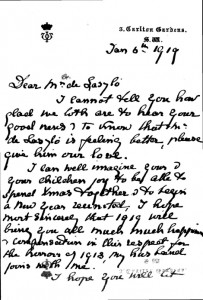 3, Carlton Gardens.
S.W.
Jan 6th 1919
Dear Mrs de Laszlo
I cannot tell you how
glad we both are to hear your
good news & to know that Mr
de Laszlo is feeling better, please
give him our love.
I can well imagine your &
your children's joy to be able to
spend Xmas together & to begin
a New Year reunited. I hope
most sincerely that 1919 will
bring you all much much happiness
& compensation in this respect for
the horrors of 1918, my husband
joins with me.
I hope you will let